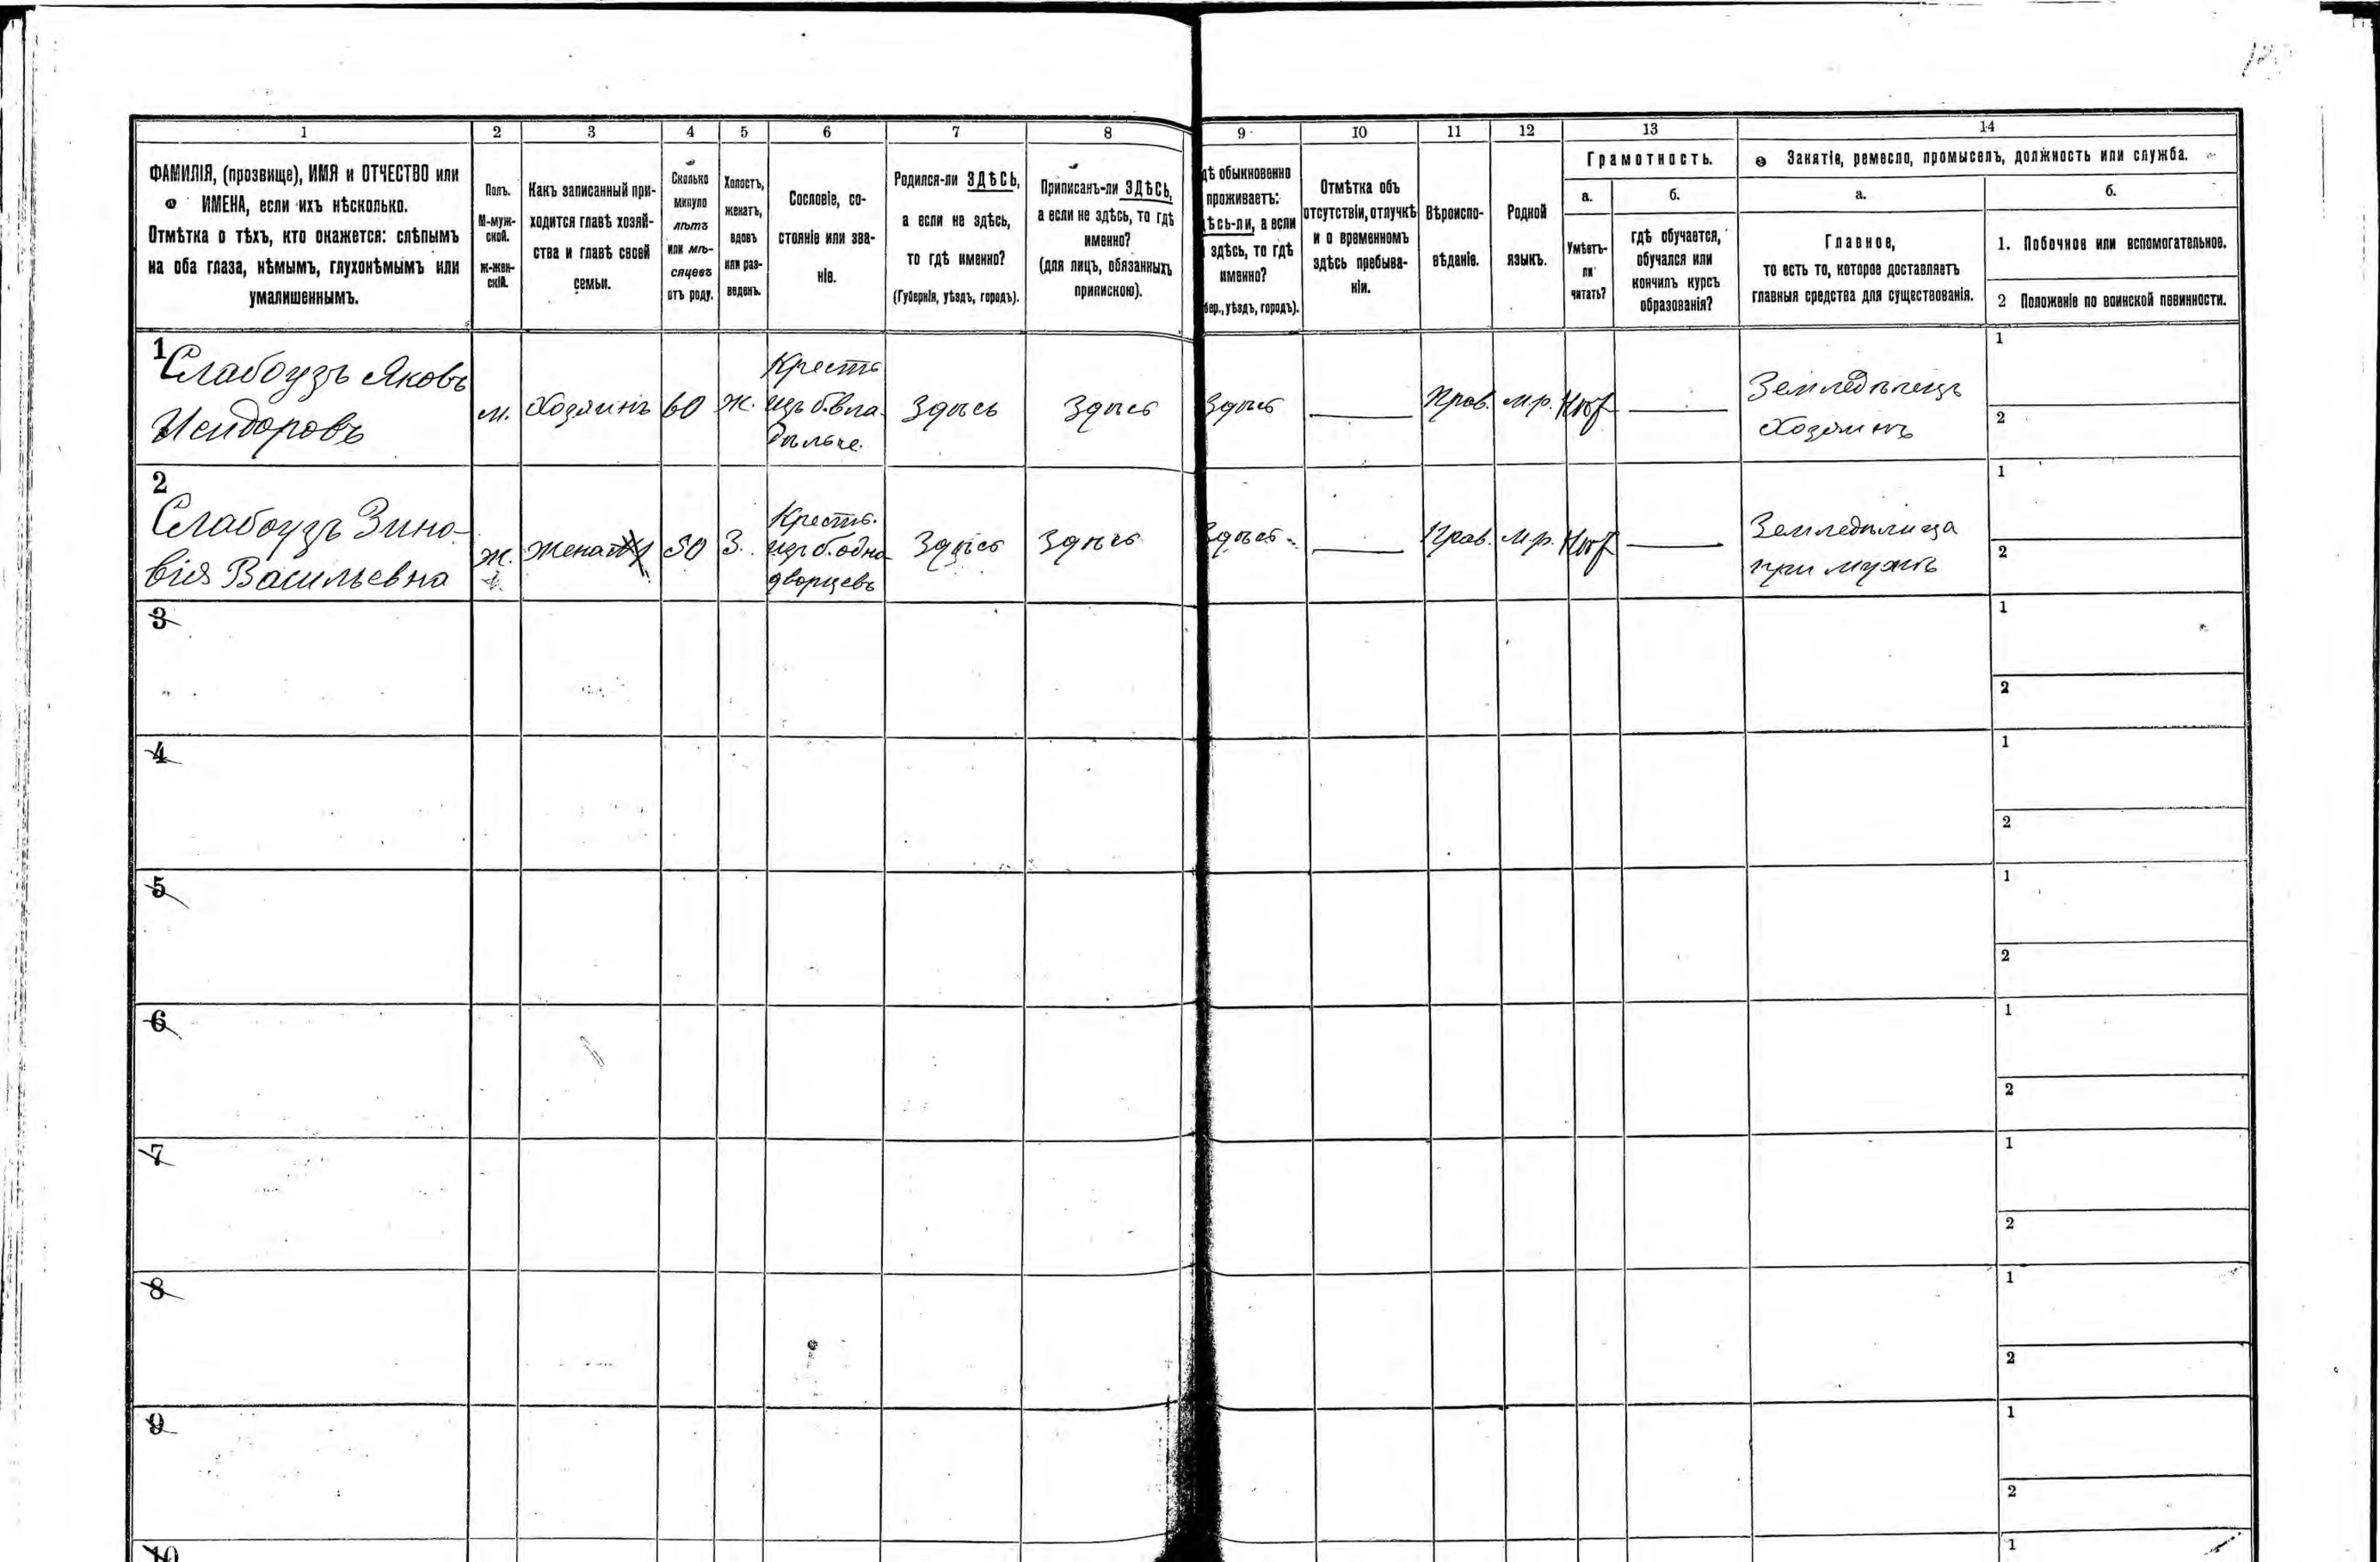 1 2 3 4 5 6 7 8 9 10 11 12 13 14
ФАМИЛІЯ, (прозвище), ИМЯ и ОТЧЕСТВО или
ИМЕНА, если ихъ нѣсколько.
Отмѣтка о тѣхъ, кто окажется: слѣпымъ
на оба глаза, нѣмымъ, глухонѣмымъ или
умалишеннымъ.
Полъ.
М-муж-
ской.
ж-жен-
скій.
Какъ записанный при-
ходится главѣ хозяй-
ства и главѣ своей
семьи.
Сколько
минуло
лѣтъ
или мѣ-
сяцевъ
отъ роду.
Холостъ,
женатъ,
вдовъ
или раз-
веденъ.
Сословіе, со-
стояніе или зва-
ніе.
Родился-ли ЗДѢСЬ,
а если не здѣсь,
то гдѣ именно?
(Губернія, уѣздъ, городъ).
Приписанъ-ли ЗДѢСЬ,
а если не здѣсь, то гдѣ
именно?
(для лицъ, обязанныхъ
припискою).
дѣ обыкновенно
проживаетъ:
ѣсь-ли, а если
здѣсь, то гдѣ
именно?
бер., уѣздъ, городъ).
Отмѣтка объ
отсутствіи, отлучкѣ
и о временномъ
здѣсь пребыва-
ніи.
Вѣроиспо-
вѣданіе.
Родной
языкъ.
Грамотность.
а.
Умѣетъ-
ли
читать?
б.
гдѣ обучается,
обучался или
кончилъ курсъ
образованія?
Занятіе, ремесло, промыселъ, должность или служба.
а.
Главное,
то есть то, которое доставляетъ
главныя средства для существованія.
б.
1. Побочное или вспомогательное.
2 Положеніе по воинской повинности.
1
Слабоузъ Яковъ
Исидоровъ
м.
Хозяинъ
60
ж.
Крестья
изъ б. вла
дѣльче.
Здѣсь
Здѣсь
Здѣсь
Прав.
м.р.
Нѣт
Земледѣлецъ
Хозяинъ
1
2
2
Слабоузъ Зино-
вія Васильевна
ж.
жена
50
З.
Кресть.
изъ б. одно
дворцевъ
Здѣсь
Здѣсь
Здѣсь
Прав.
м.р.
Нѣт
Земледѣлица
при мужѣ
1
2
3
1
2
4
1
2
5
1
2
6
1
2
7
1
2
8
1
2
9
1
2
10
1